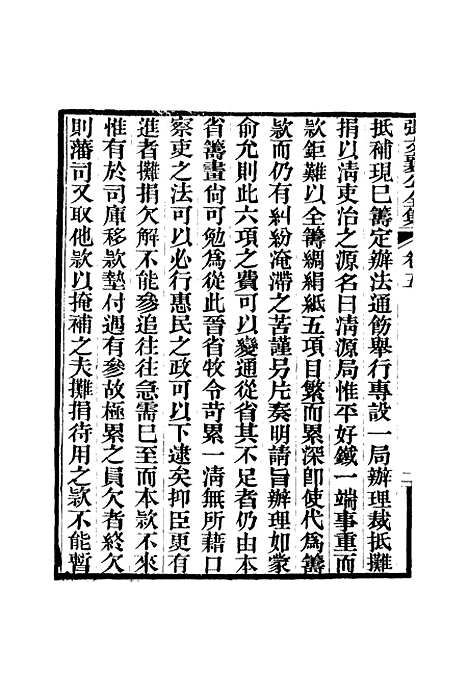 張文襄公全集 卷五
二
抵補現已籌定辦法通飭舉行專設一局辦理裁抵攤
捐以清吏治之源名曰清源局惟平好鐵一端事重而
款鉅難以全籌綢絹紙五項目繁而累深卽使代爲籌
款而仍有糾紛淹滯之苦謹另片奏明請旨辦理如蒙
俞允則此六項之費可以變通從省其不足者仍由本
省籌畫尙可勉爲從此晉省牧令苛累一清無所藉口
察吏之法可以必行惠民之政可以下逮矣抑臣更有
進者攤捐欠解不能參追往往急需已至而本款不來
惟有於司庫移款墊付遇有參故極累之員欠者終欠
則藩司又取他款以掩補之夫攤捐待用之款不能暫